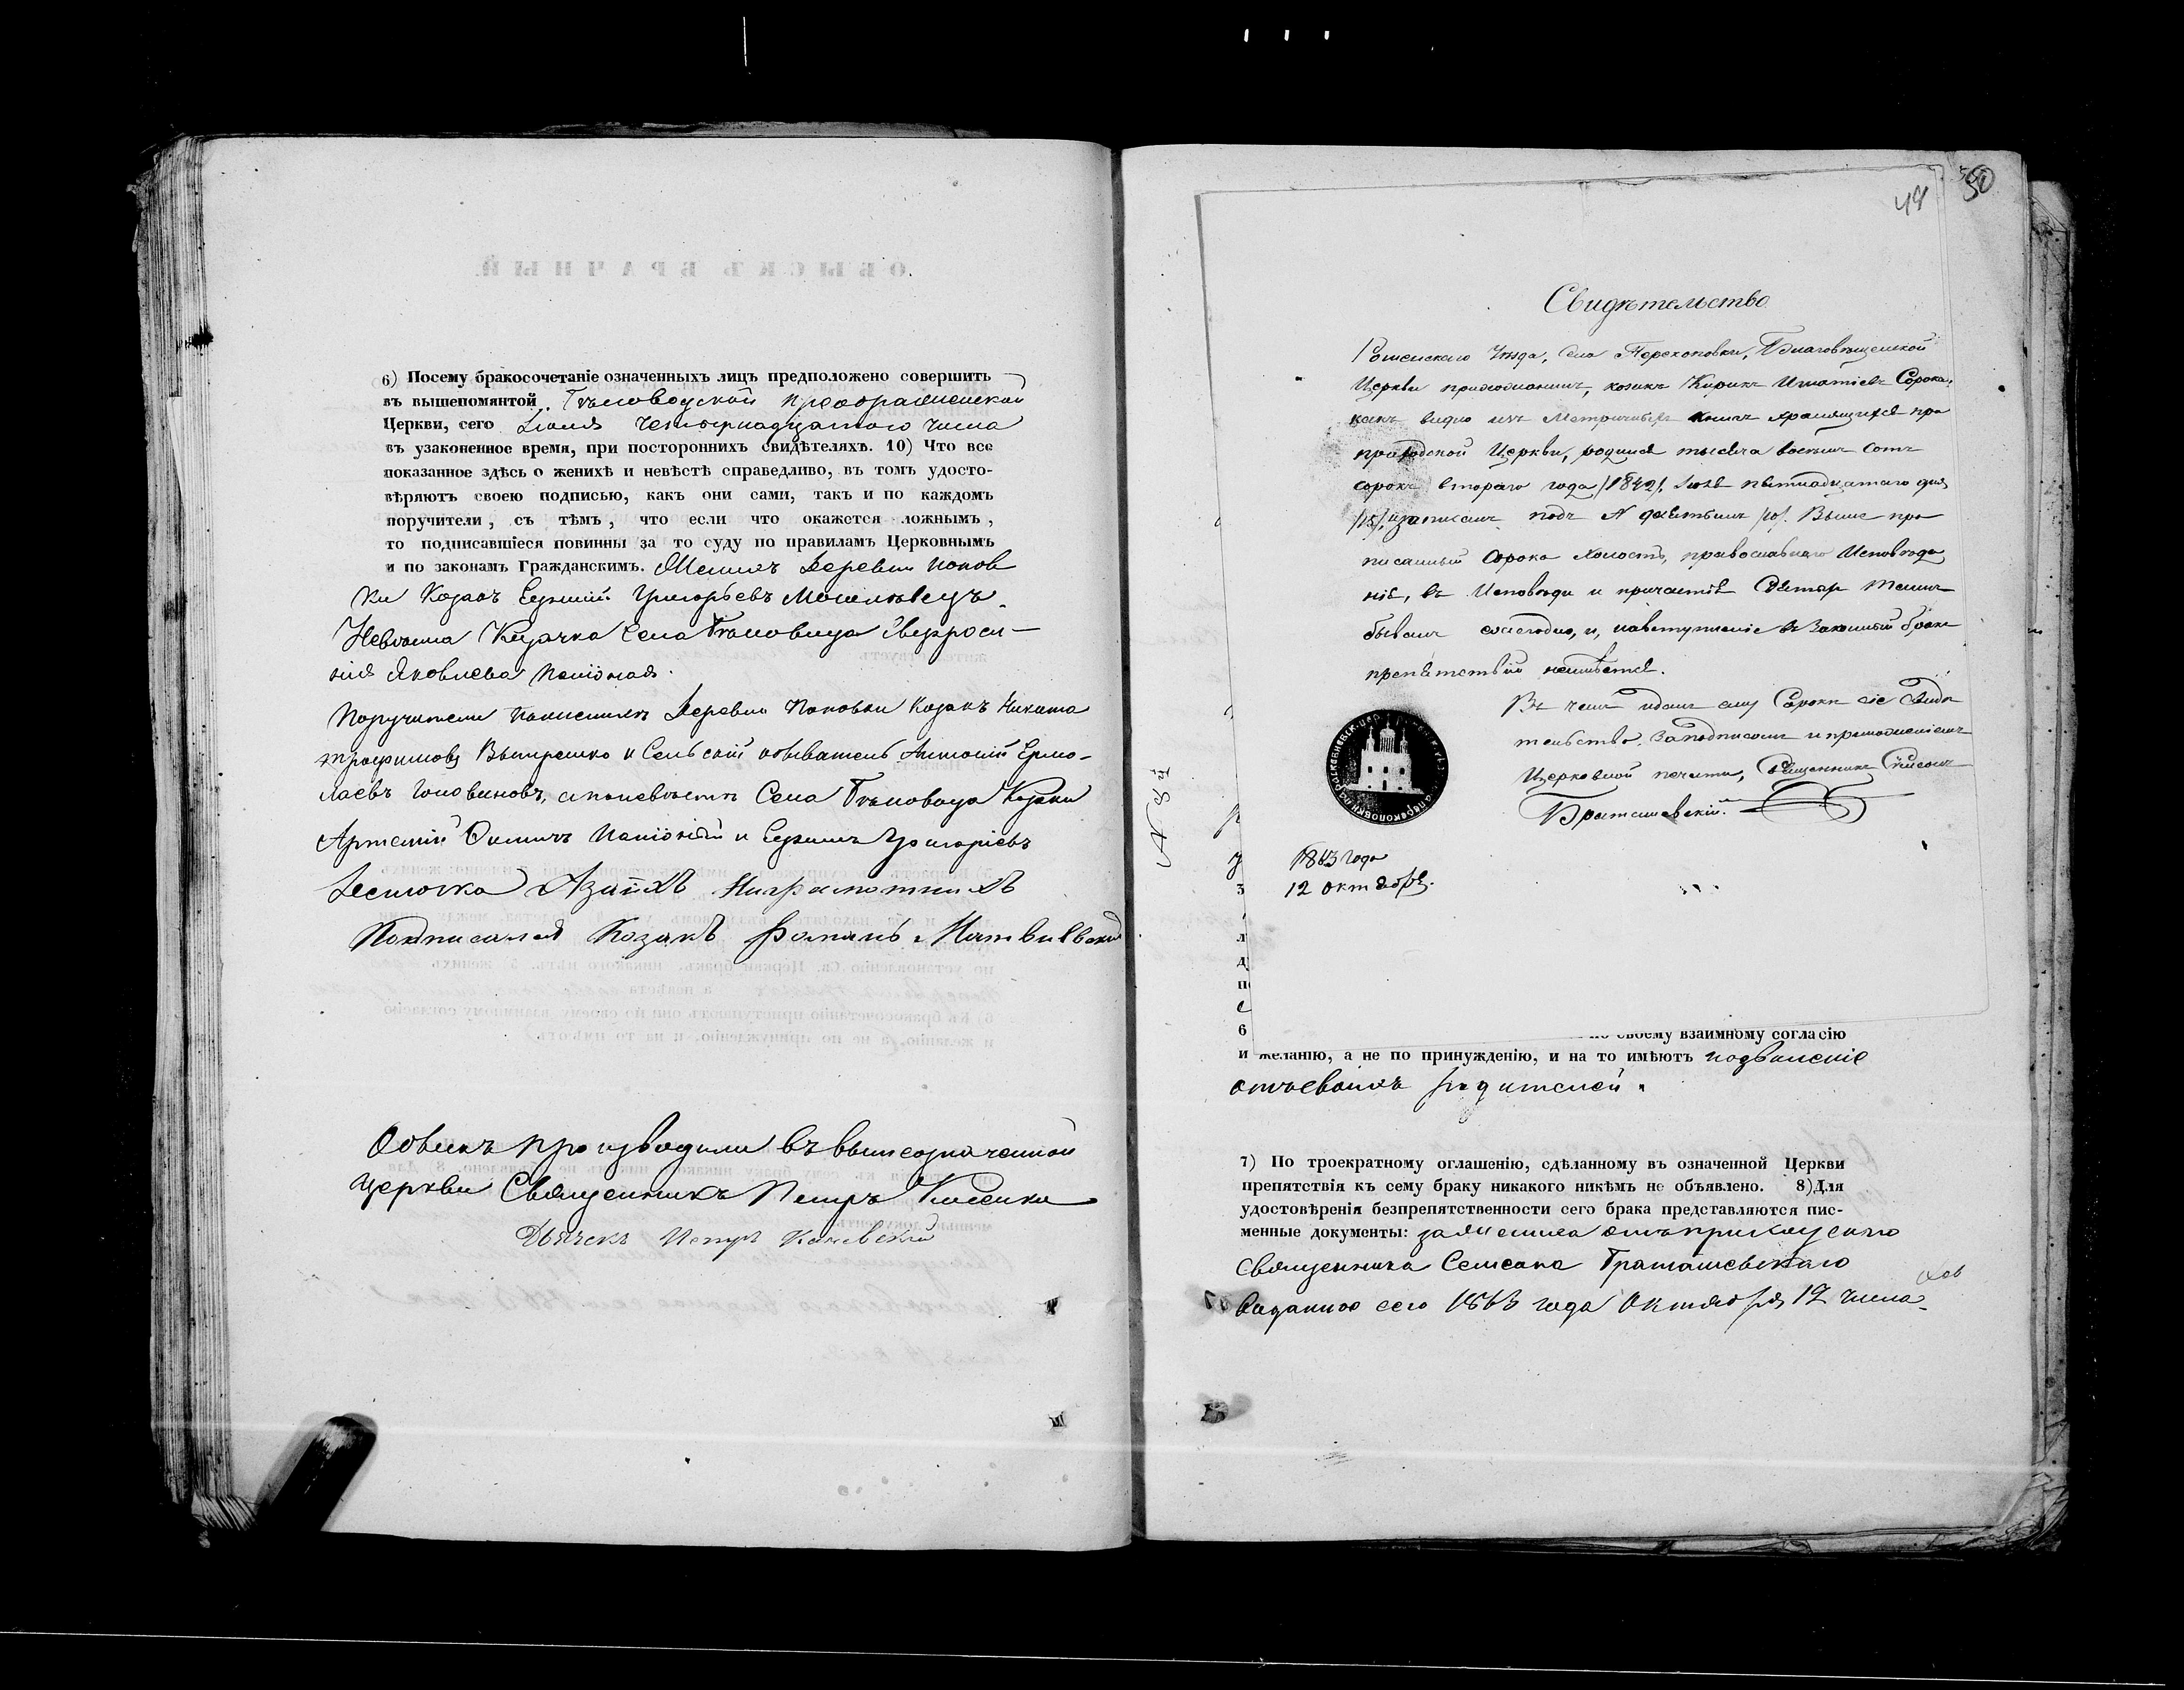 6) Посему бракосочетаніе означенныхъ лицъ предположено совершить
въ вышепомянтой Бѣловодской Преображенской
Церкви, сего Іюля Четырнадцатого числа
въ узаконенное время, при постороннихъ свидѣтеляхъ. 10) Что все
показанное здѣсь о женихѣ и невѣстѣ справедливо, въ томъ удосто-
вѣряютъ своею подписью, какъ они сами, такъ и по каждомъ
поручители, съ тѣмъ, что если что окажется ложнымъ,
то подписавшіеся повинны за то суду по правиламъ Церковнымъ
и по законамъ Гражданскимъ. Женихъ деревни Попов
ки Козакъ Григорьевъ
Невѣста Козачка Села Бѣловода Евфроси-
нія Яковлева
Поручители по женихѣ деревни Поповки Козакъ Никита
Трофимовъ и Сельскій обыватель Антоній Ермо-
лаевъ Головиновъ, а по невѣстѣ Села Бѣловода Козаки
Артемій и Григоріевъ
А за нихъ Награмотнихъ
Подписался Козакъ Романъ
Обыскъ производили въ вышеозначенной
Церкви Священникъ Петръ
Дьячекъ Петръ
48
50
Свидѣтельство
Роменскаго Уѣзда, Села Перекоповки, Благовѣщенской
Церкви прихожанинъ, козакъ Кирикъ Игнатіевъ Сорока,
какъ видно изъ Метрическихъ книгъ хранящихся при
приходской Церкви, родился тысяча восемь сотъ
сорокъ втораго года /1842/, Іюля пятнадцатаго дня
/15/, и записанъ подъ N Выше про
писанный Сорока холостъ, православнаго Исповѣда
нія, въ Исповѣди и причастіи Святыхъ Таинъ
бывалъ ежегодно, и, на вступленіе въ Законный бракъ
препятствій неимѣется.
Въ чемъ и данъ ему Сорокѣ сіе Свидѣ
тельство. За подписомъ и приложеніемъ
Церковной печати, Священникъ
Браташевскій.
1863 года
12 октября.
своему взаимному согласію
и желанію, а не по принужденію, и на то имѣютъ позволеніе
отъ своихъ родителей.
7) По троекратному оглашенію, сдѣланному въ означенной Церкви
препятствія къ сему браку никакого никѣмъ не объявлено. 8)Для
удостовѣренія безпрепятственности сего брака представляются пис-
менные документы: за жениха отъ приходского
священника Симеона Браташевскаго
выданное сего 1863 года Октября 12 числа